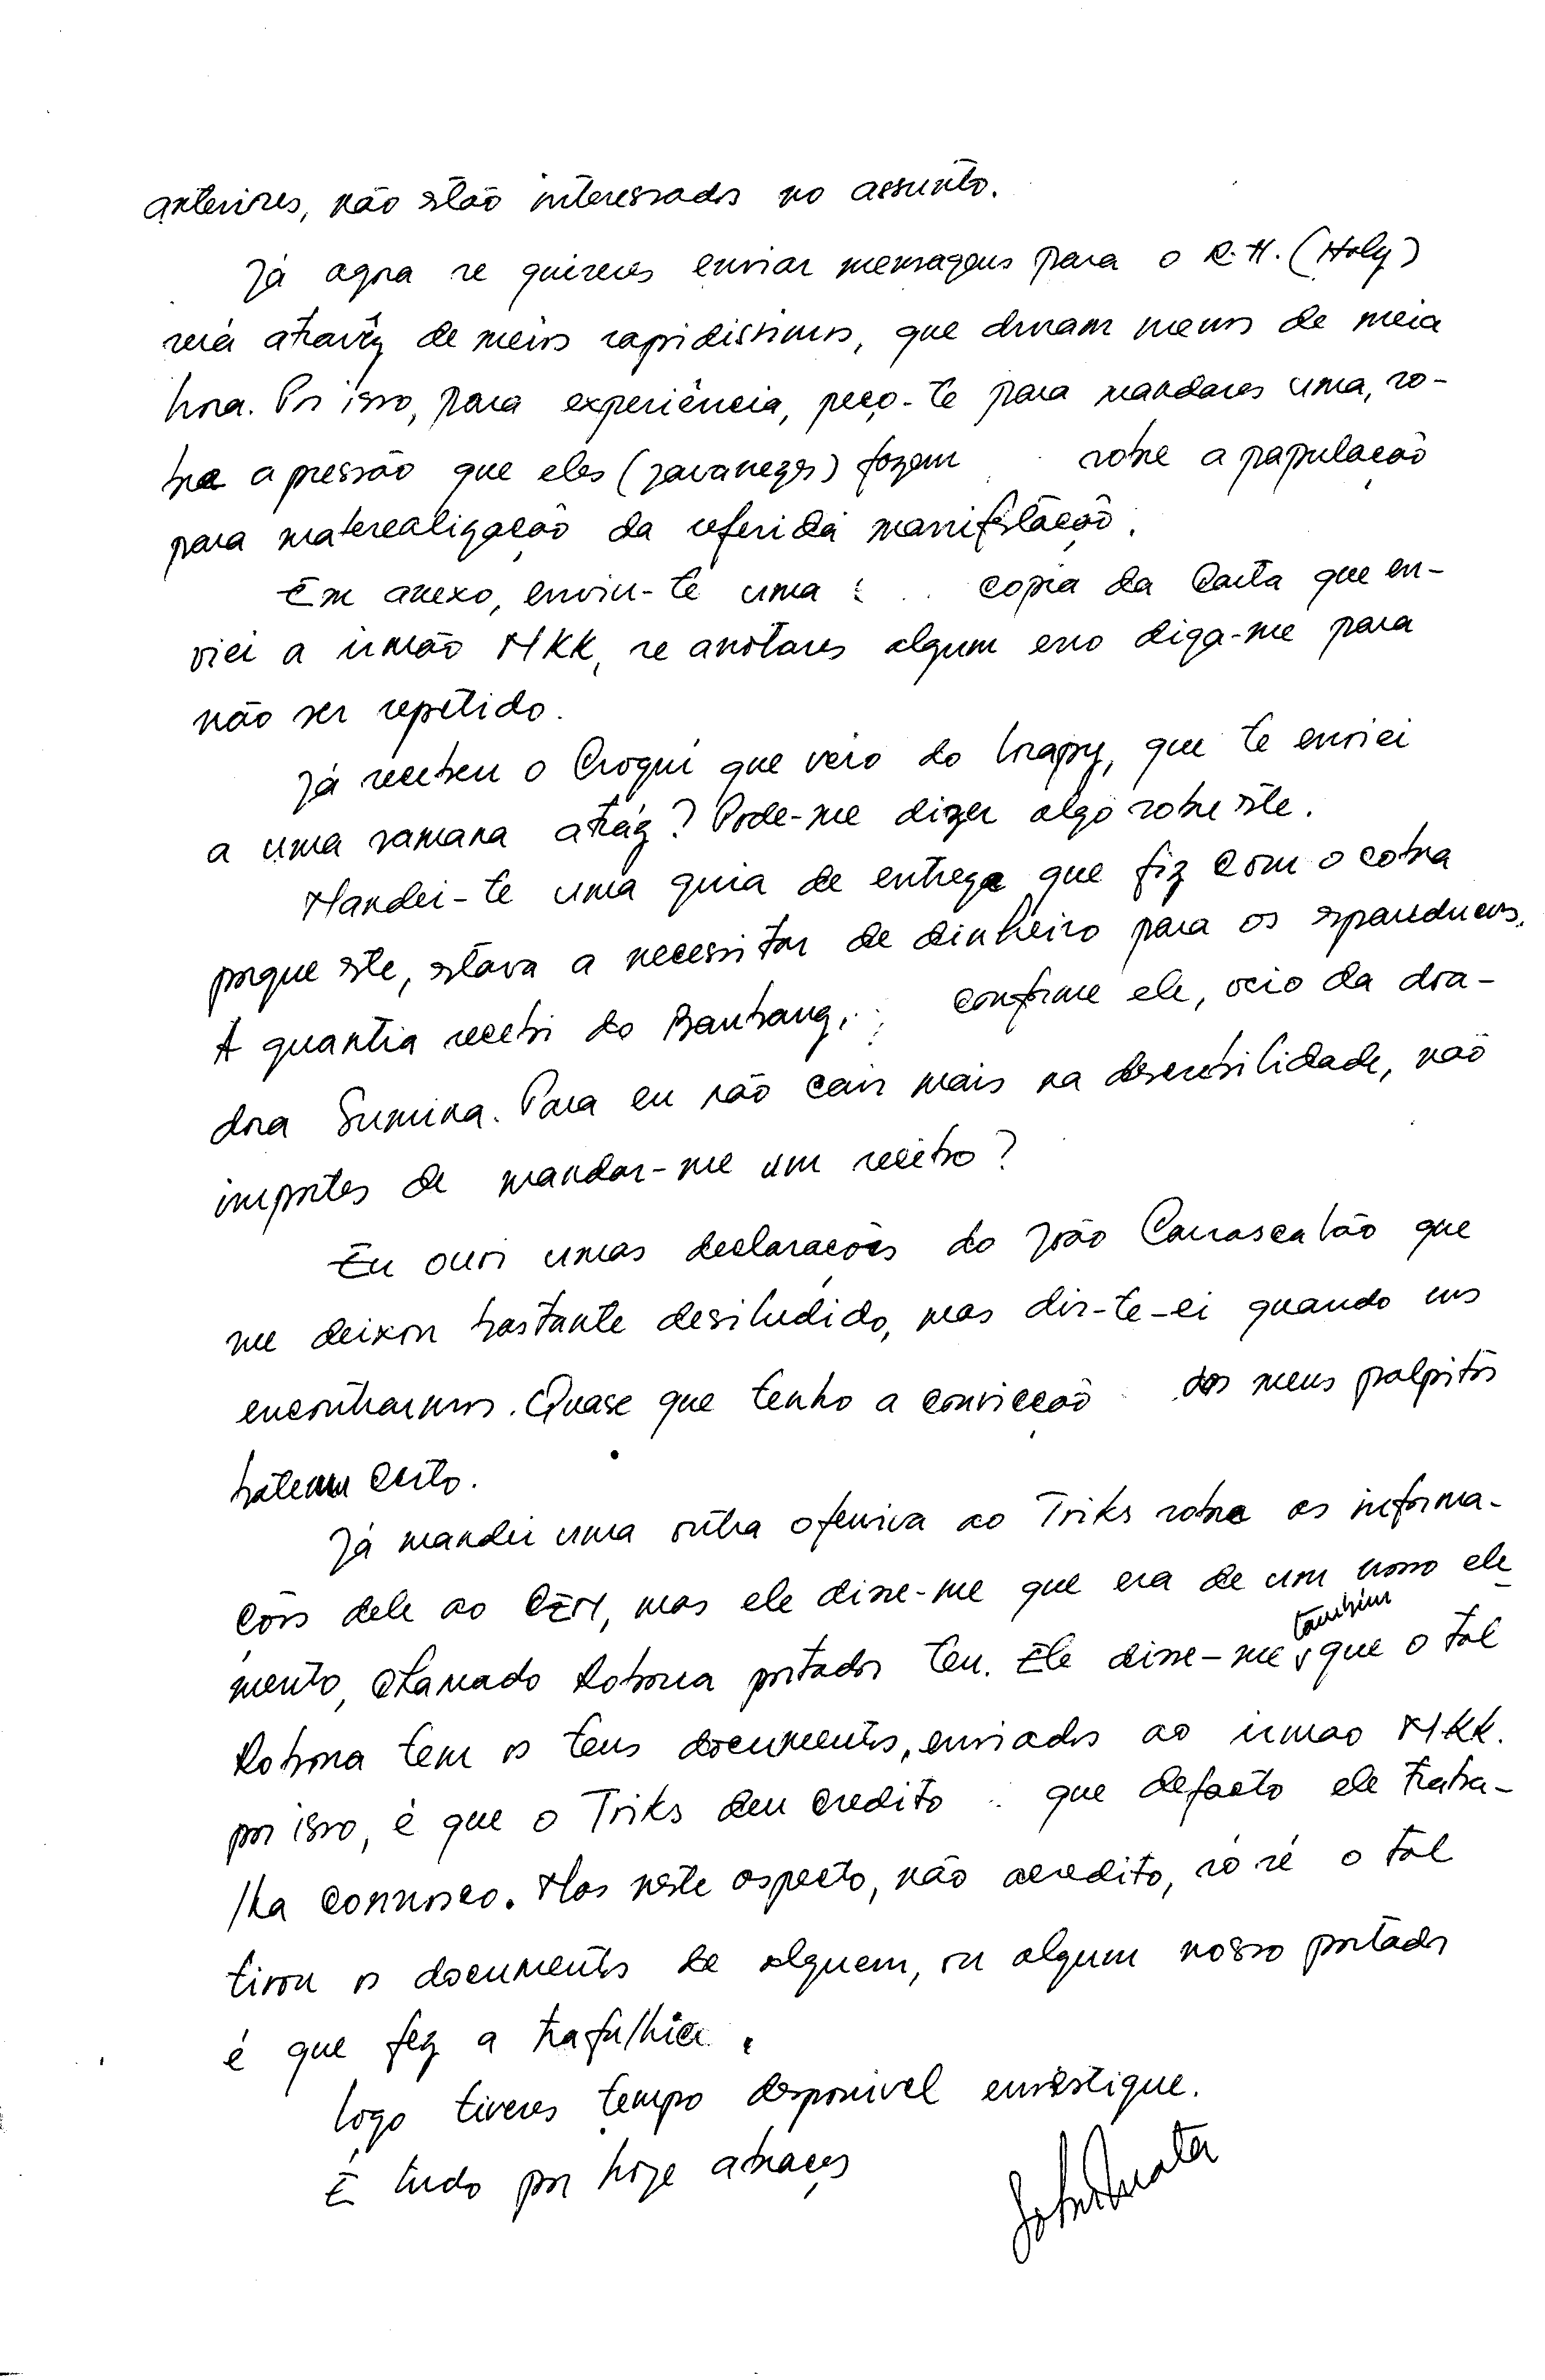 anteriores, não stão interessados no assunto.
Já agora se quizeres enviar mensagens para o R.H. (Holy)
será atravêz de meios rapidissimos, que duram menos de meia
hora. Por isso, para experiência, peço-te para mandares uma, so-
bre a pressão que eles (javanezes) fazem sobre a papulação
para materealização da referida manifstação.
Em anexo, enviu-te uma copia da Carta que en-
viei a irmão HKK, se anotares algum erro diga-me para
não ser repetido.
Já recebeu o Croqui que veio do, que te enviei
a uma samana atráz? Pode-me dizer algo sobre ste.
Mandei-te uma guia de entrega que fiz com o cobra
porque ste, stava a necessitar de dinheiro para os
A quantia recebi do Banbang, conforme ele, veio da doa-
dora Sumina. Para eu não cair mais na descrebilidade, não
importes de mandar-me um recibo?
Eu ouvi umas declarações do João Carrascalão que
me deixou bastante desiludido, mas dir-te-ei quando nos
encontrarmos. Quase que tenho a convicção dos meus palpitos
batem certo.
Já mandei uma outra ofensiva ao Triks sobre as informa-
cões dele ao CEM, mas ele disse-me que era de um nosso ele
mento, chamado Robona portador teu. Ele disse-me também que o tal
Robona tem os teus documentos, enviados ao irmao HKK.
por isso, é que o Triks deu credito que defacto ele traba-
lha connosco. Mas neste aspecto, não acredito, só sé o tal
tirou os documentos de alguem, ou algum nosso portador
é que fez a trafulhice.
logo tiveres tempo desponivel envestigue.
É tudo por hoje abraços